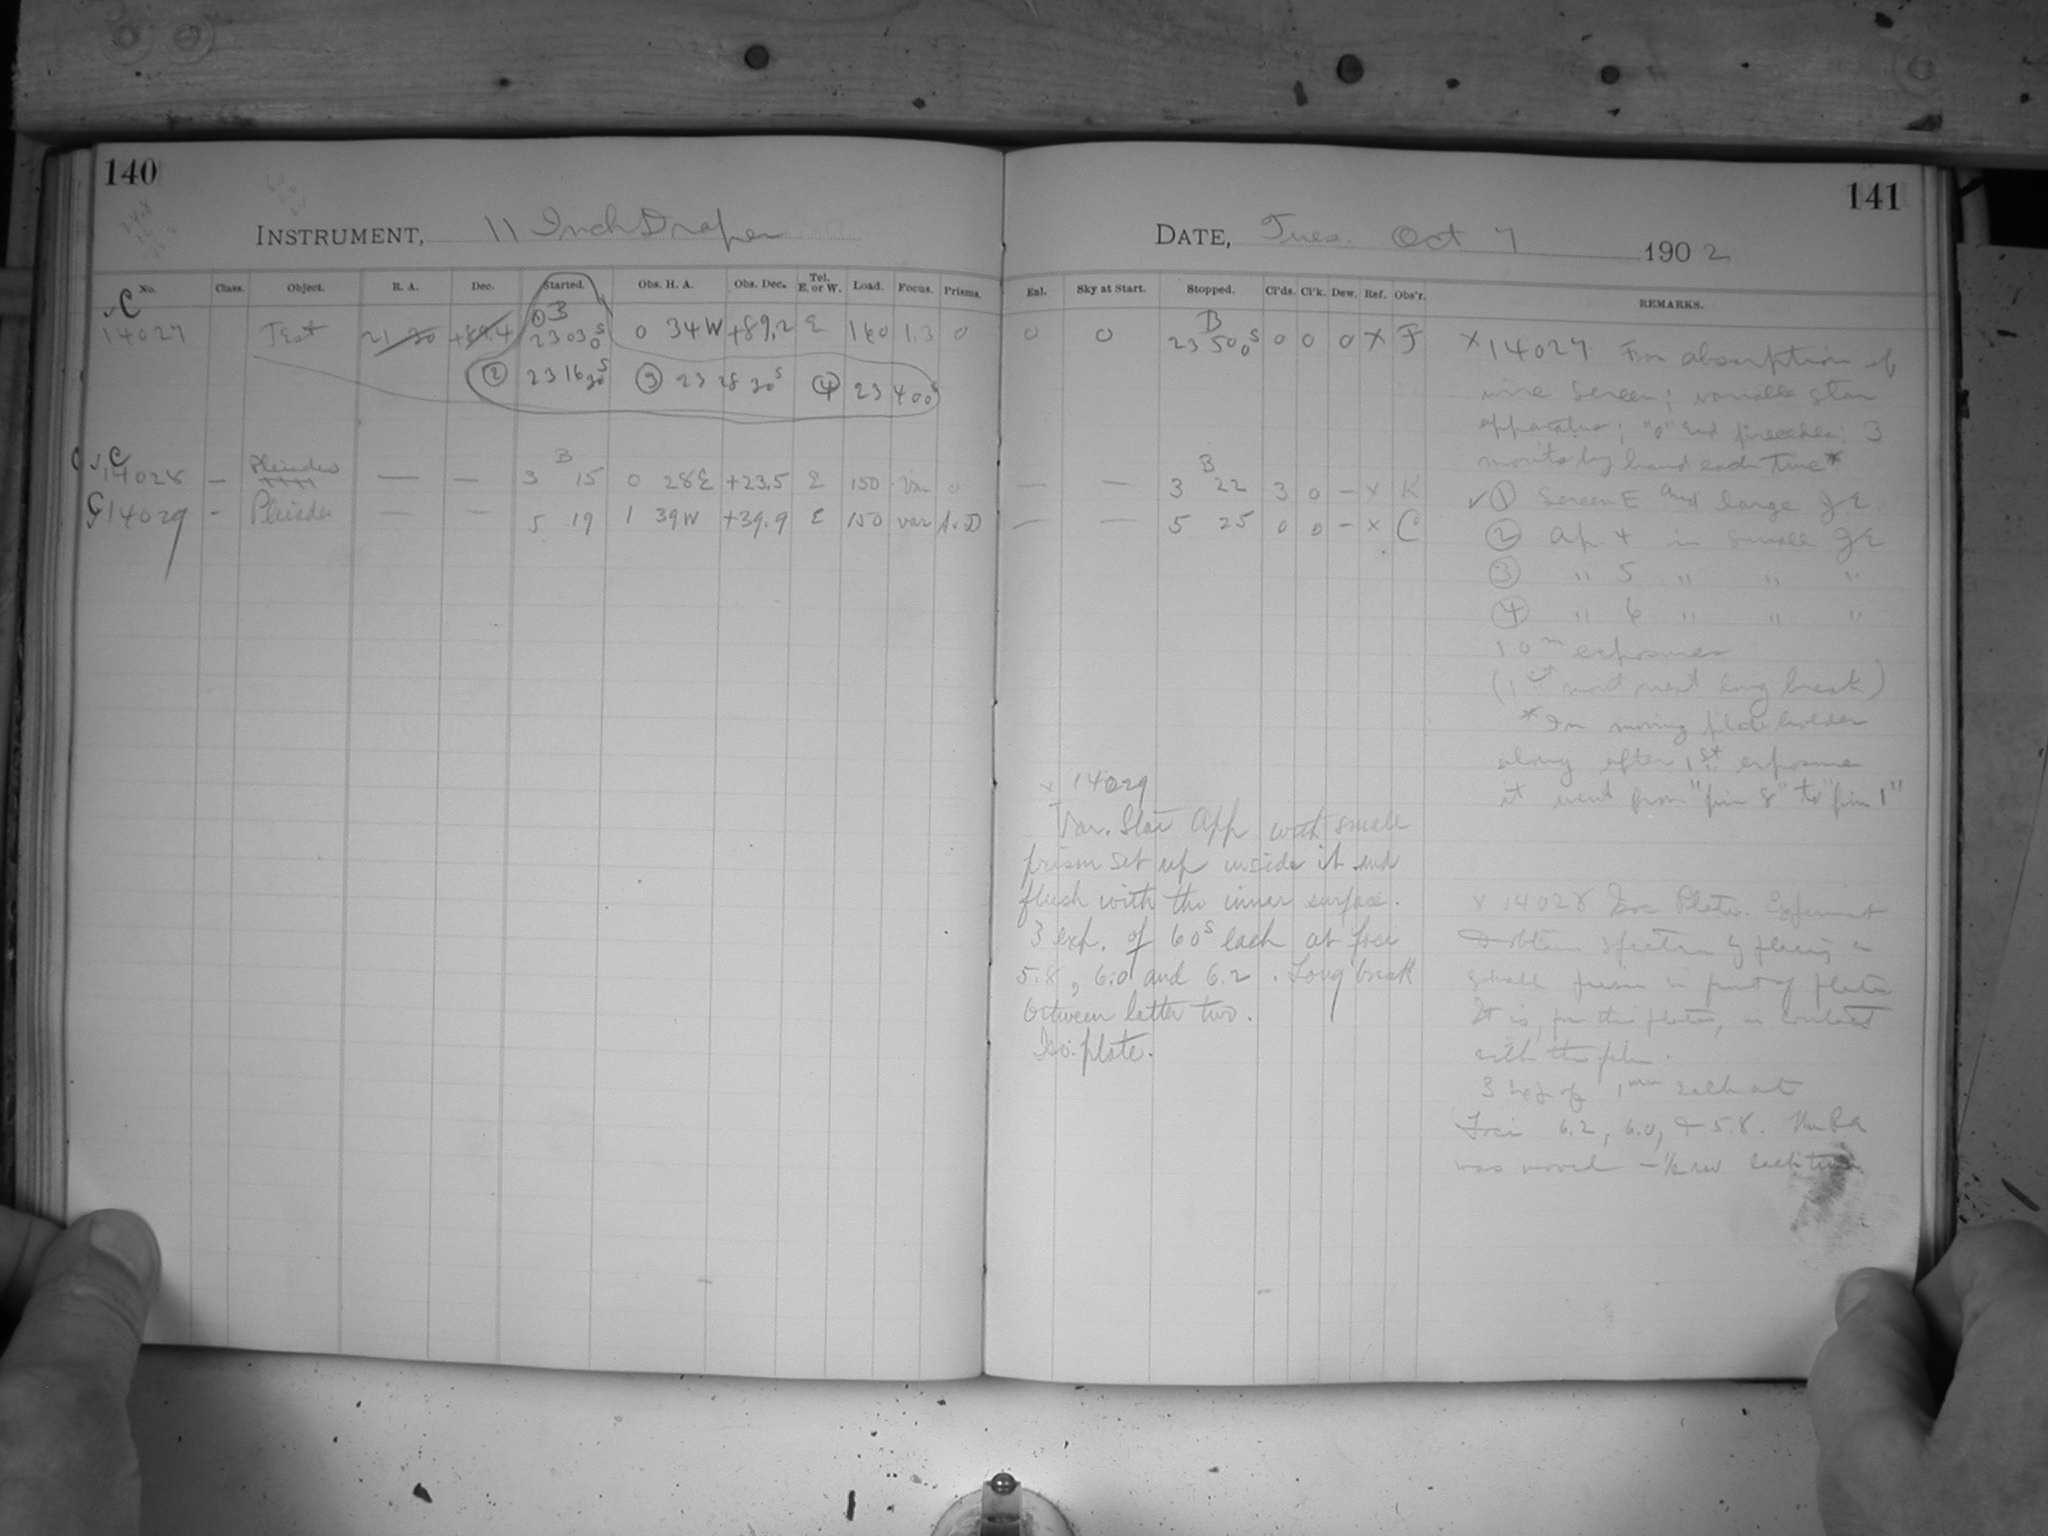 140
INSTRUMENT, 11 Inch Draper
No. Class. Object. R. A. Dec. Started. Obs. H. A. Obs. Dec. Tel. E. or W. Load. Focus. Prisms.
√C
14027 Test 21 30 +89.4 ① B 23 03 0s 0 34 W +89.2 E 160 1.3 0
② 23 16 30s ③ 23 28 30s ④ 23 40 0s
√C
14028 — Pleiades — — B 3 15 0 28 E +23.5 E 150 Var 0
14029 - Pleiades — — 5 19 1 39 W +39.9 E 150 var
141
DATE, Tues. Oct 7 1902
Enl. Sky at Start. Stopped. Cl'ds. Cl'k. Dew. Ref. Obs'r. REMARKS.
0 0 B 23 50 0s 0 0 0 X F
— — B 3 22 3 0 — x K
— — 5 25 0 0 — x C
X 14027 For absorption of
wire screen; variable star
apparatus; "0" End 3
by hand each time*
√ ① Screen E and large J E.
② Ap. 4 in small J E
③ " 5 " " "
④ " 6 " " "
10m exposures
(1st long break)
*In moving plate holder
along after 1st exposure
it went from "pin 8" to "pin 1"
x 14029
Var. Star App with small
prism set up inside it and
flush with the inner surface.
3 exp. of 60s each at foci
5.8, 6.0 and 6.2. Long break
between latter two.
Iso. plate.
x 14028 Iso Plate. Experiment
to obtain spectra by placing a
small prism in front of plate
It is, for this plate, in contact
with the film.
3 exp of 1min each at
Foci 6.2, 6.0, + 5.8. The RA
was moved — ½ rev each time